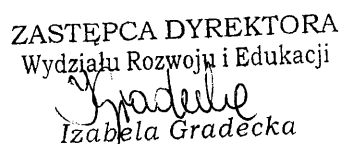 ZASTĘPCA DYREKTORA
Wydziału Rozwoju i Edukacji
Gradecka
Izabela Gradecka